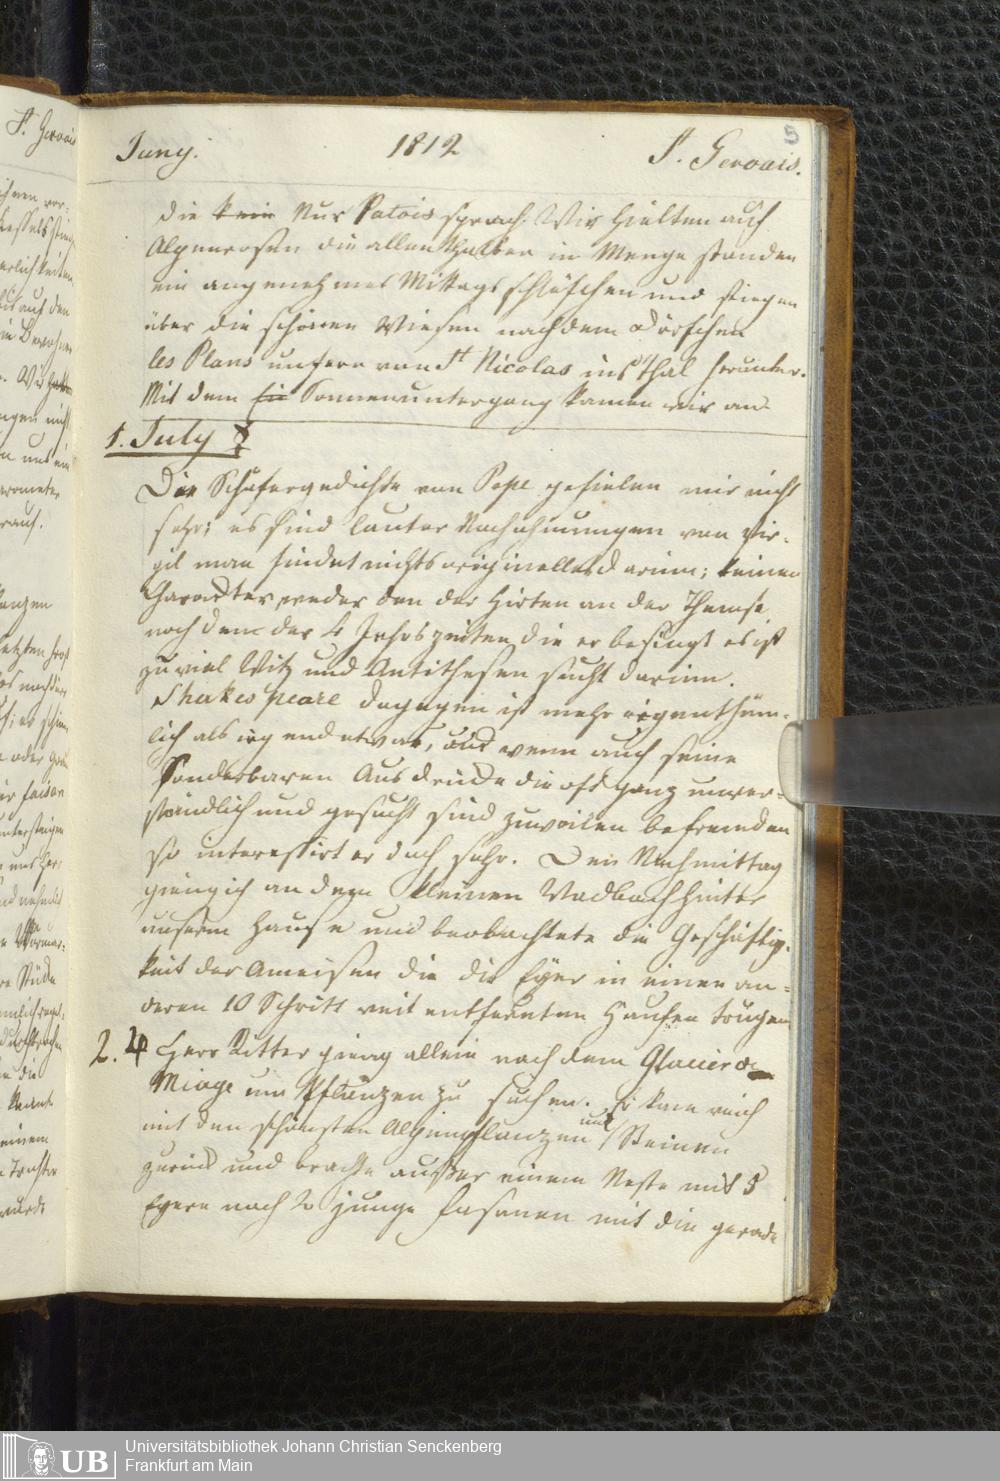 5
Juny. 1812 S. Gervais.
die kein Nur Patois sprach. Wir hielten auf
Alpenrosen die allenthalben in Menge standen
ein angenehmes Mittagsschläfchen und stiegen
über die schönen Wiesen nach dem Dörfchen
les Plans unfern von St Nicolas ins Thal herunter.
Mit dem Sonnenuntergang kamen wir an
1. July ☿
Die Schäfergedichte von Pope gefielen mir nicht
sehr; es sind lauter Nachahmungen von Vir-
gil man findet nichts originelles darinn; keinen
Character weder den der Hirten an der Themse
noch den der 4 Jahrszeiten die er besingt es ist
zu viel Witz und Antithesen sucht darinn.
Shakespeare dagegen ist mehr eigenthüm-
lich als irgend etwas, und wenn auch seine
Sonderbaren Ausdrücke die oft ganz unver-
ständlich und gesucht sind zuweilen befremden
so interessirt er doch sehr. Den Nachmittag
gieng ich an dem kleinen Waldbach hinter
unserm Hause und beobachtete die Geschäftig-
keit der Ameisen die die Eyer in einen an-
deren 10 Schritt weit entfernten Haufen trugen
2. ♃ Herr Ritter gieng allein nach dem Glacier de
Miage um Pflanzen zu suchen. Er kam reich
mit den schönsten Alpenpflanzen und Steinen
zurück und brachte außer einem Neste mit 5
Eyern noch 2 junge Fasanen mit die gerade
Universitätsbibliothek Johann Christian Senckenberg
Frankfurt am Main
UB